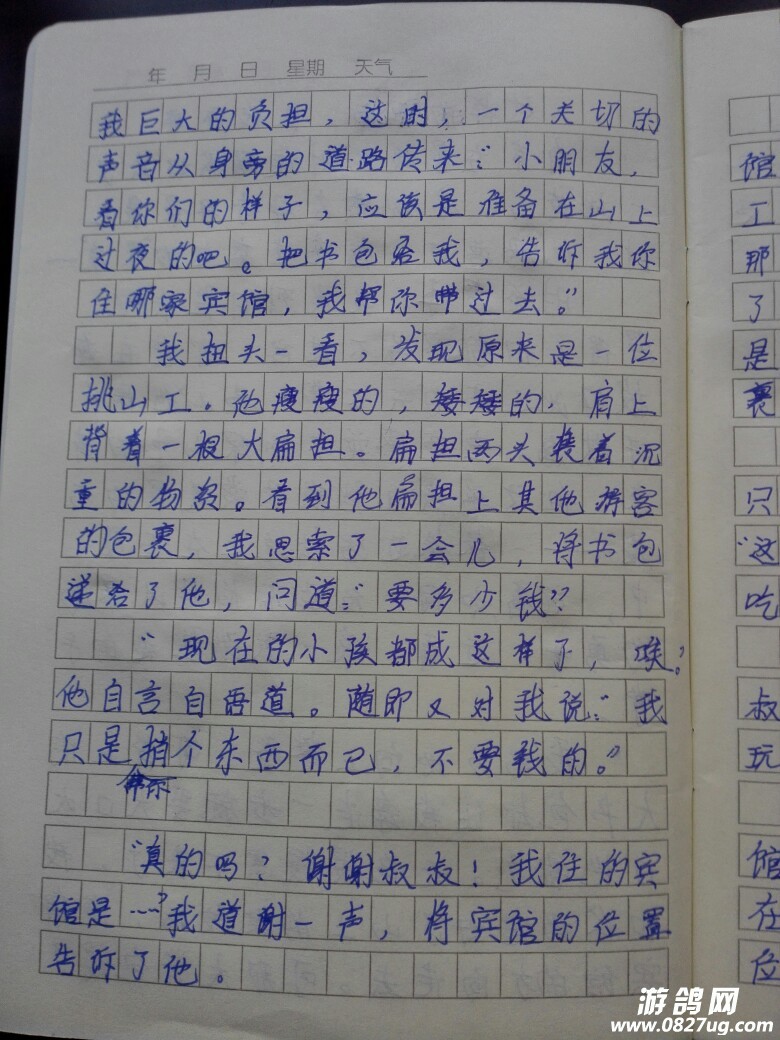 年 月 日 星期 天气
我巨大的负担，这时，一个关切的
声音从身旁的道路传来：“小朋友，
看你们的样子，应该是准备在山上
过夜的吧。把书包给我，告诉我你
住哪家宾馆，我帮你带过去。”
我扭头一看，发现原来是一位
挑山工。他瘦瘦的，矮矮的，肩上
背着一根大扁担。扁担两头装着沉
重的物资。看到他扁担上其他游客
的包裹，我思索了一会儿，将书包
递给了他，问道：“要多少钱？”
“现在的小孩都成这样子，唉”
他自言自语道。随即又对我说：“我
只是捎个东西而已，不要钱的。”
帮你
“真的吗？谢谢叔叔！我住的宾
馆是……”我道谢一声，将宾馆的位置
告诉了他。
馆
工
那
了
是
裹
只
“这
吃
叔
玩
馆
在
位
游鸽网
www.0827ug.com